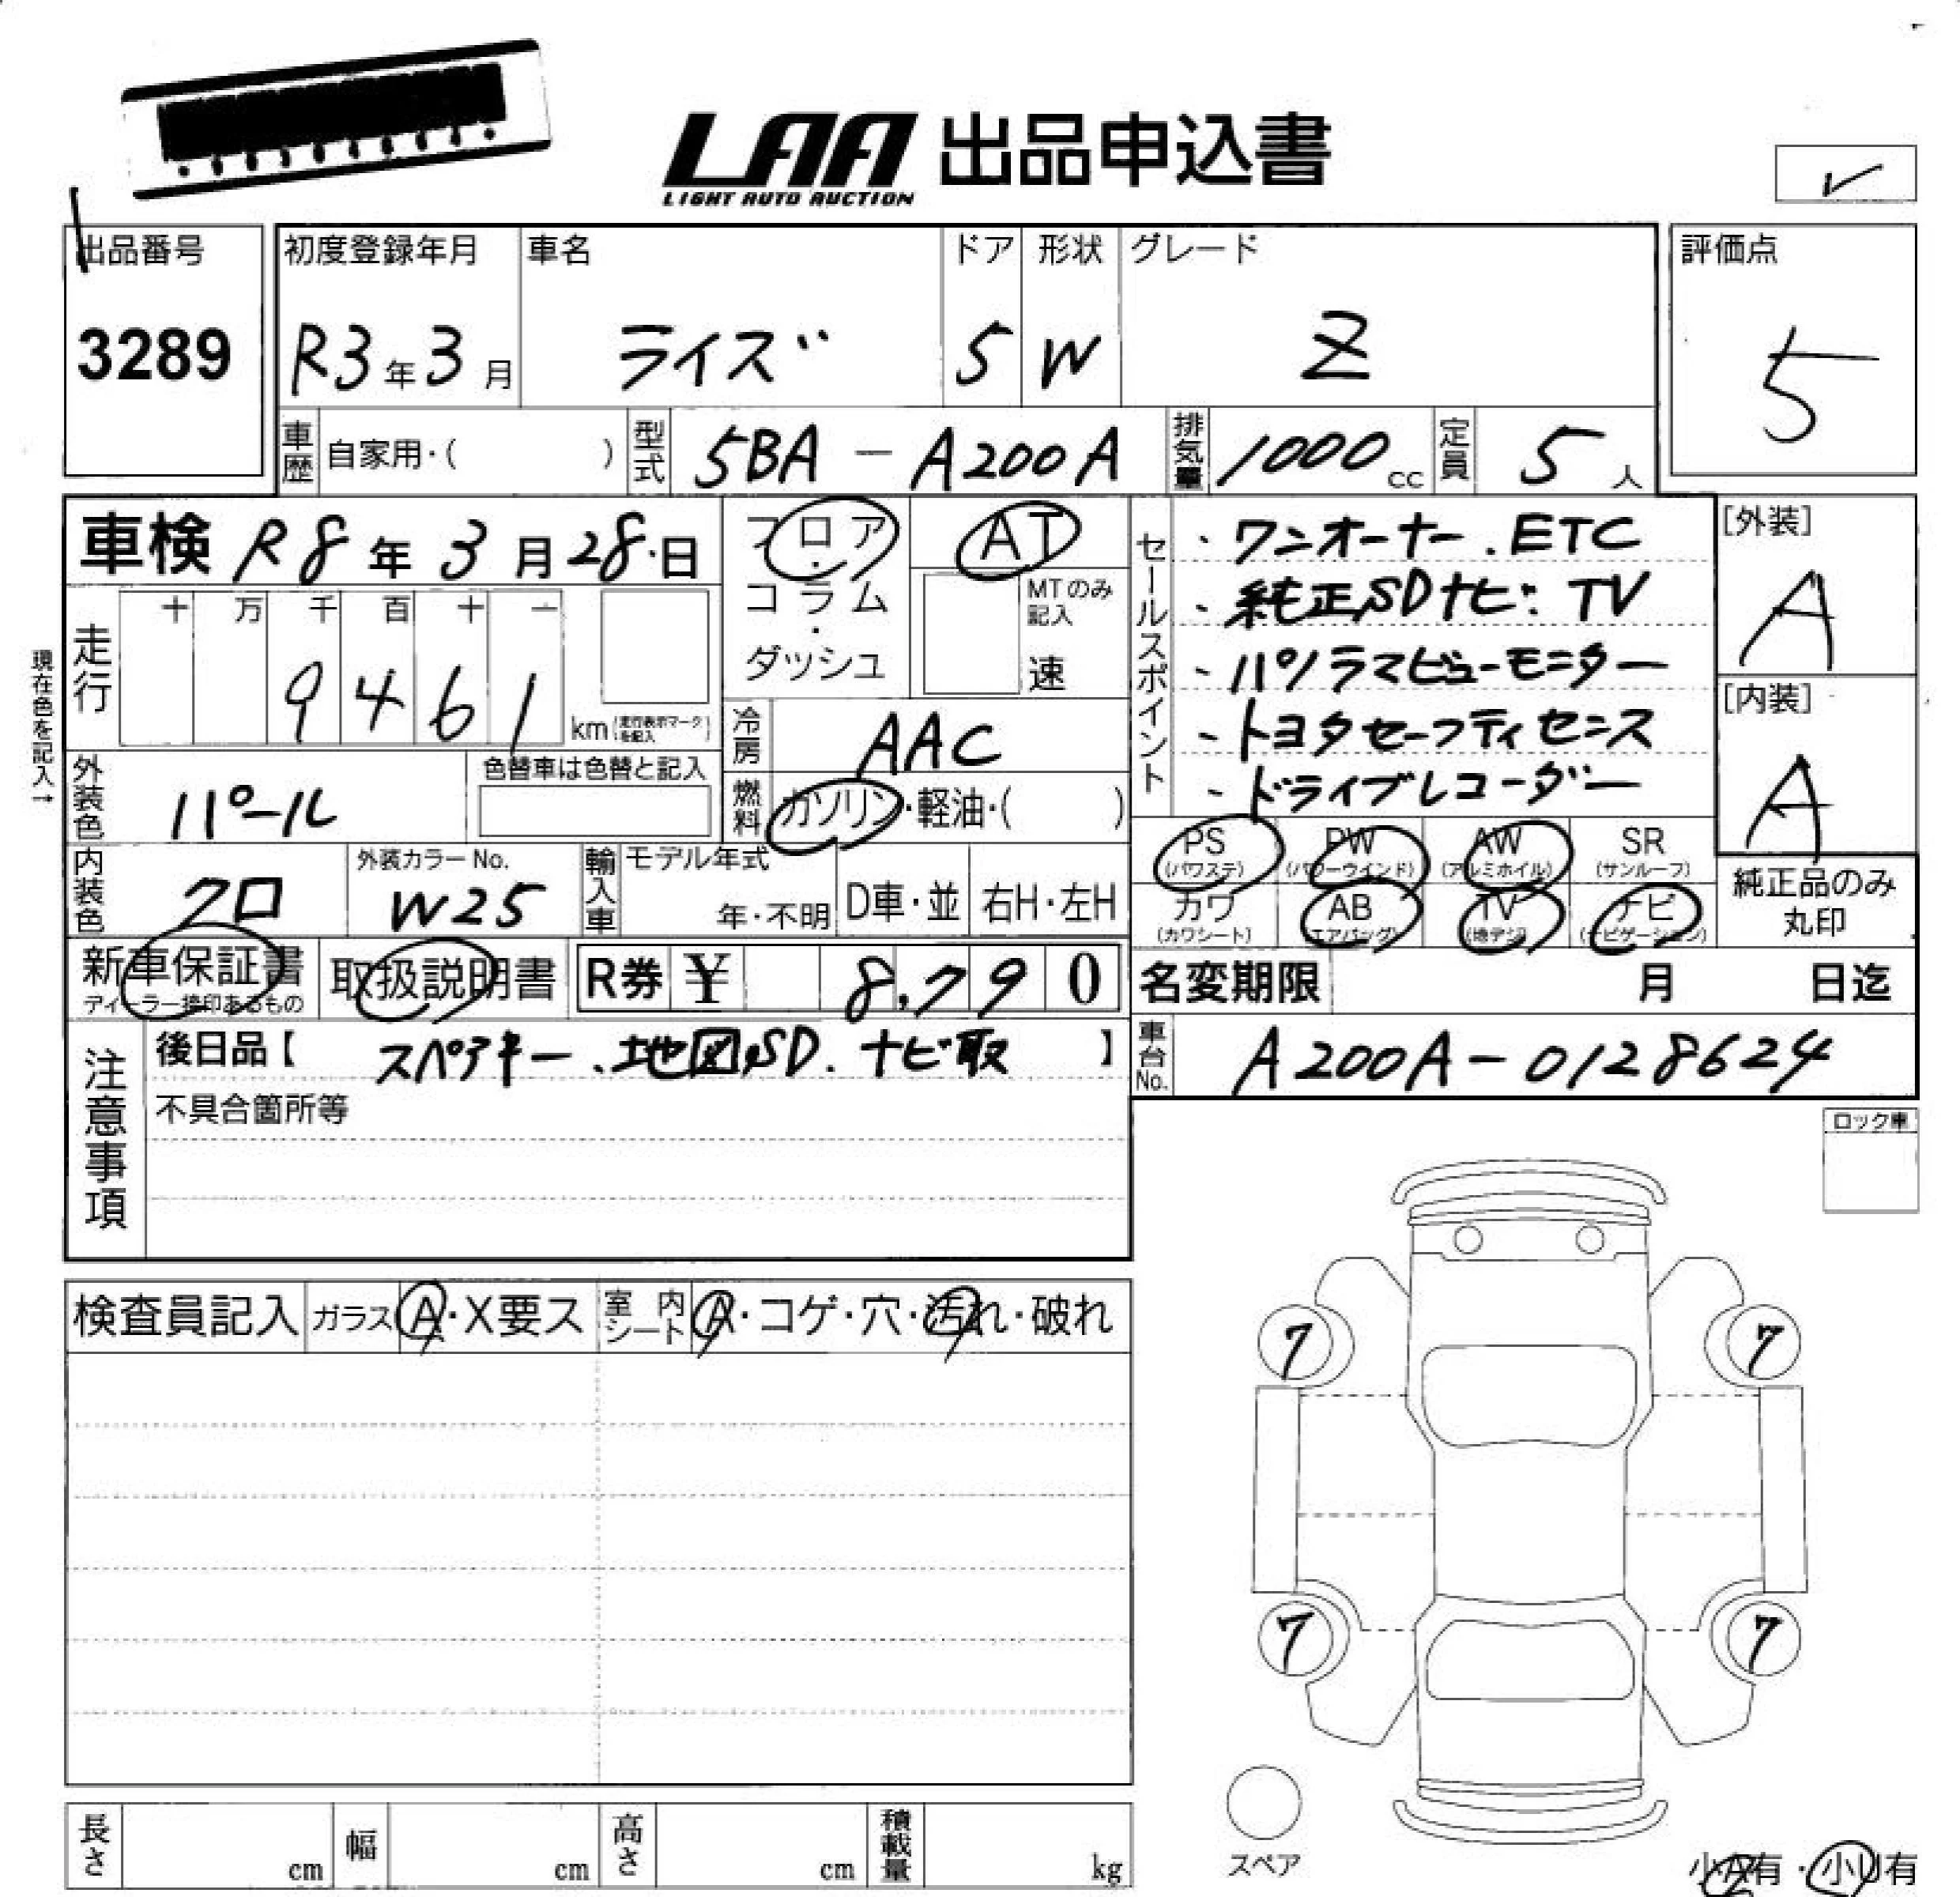 LAA 出品申込書
LIGHT AUTO AUCTION
出品番号
3289
初度登録年月
R3年3月
車名
ライズ
ドア
5
形状
W
グレード
Z
評価点
5
車歴 自家用・( )
型式 5BA-A200A
排気量 1000cc
定員 5人
車検 R8年3月28日
フロア・コラム・ダッシュ
AT
MTのみ記入
速
現在色を記入→
走行
十 万 千 百 十 一
9461 km (走行表示マークを記入)
冷房 AAC
燃料 ガソリン・軽油・( )
外装色 パール
色替車は色替と記入
内装色 クロ
外装カラーNo.
W25
輸入車 モデル年式
年・不明
D車・並
右H・左H
セールスポイント
・ワンオーナー.ETC
・純正SDナビ:TV
・パノラマビューモニター
・トヨタセーフティセンス
・ドライブレコーダー
[外装]
A
[内装]
A
PS (パワステ)
PW (パワーウインド)
AW (アルミホイル)
SR (サンルーフ)
カワ (カワシート)
AB (エアバッグ)
TV (地デジ)
ナビ (ナビゲーション)
純正品のみ丸印
新車保証書
ディーラー捺印あるもの
取扱説明書
R券 ¥ 8,790
名変期限 月 日迄
車台No. A200A-0128624
注意事項
後日品【 スペアキー、地図SD.ナビ取 】
不具合箇所等
ロック車
検査員記入 ガラス A・X要ス
室内シート A・コゲ・穴・汚れ・破れ
7
7
7
7
スペア
長さ cm
幅 cm
高さ cm
積載量 kg
小A有・小U有